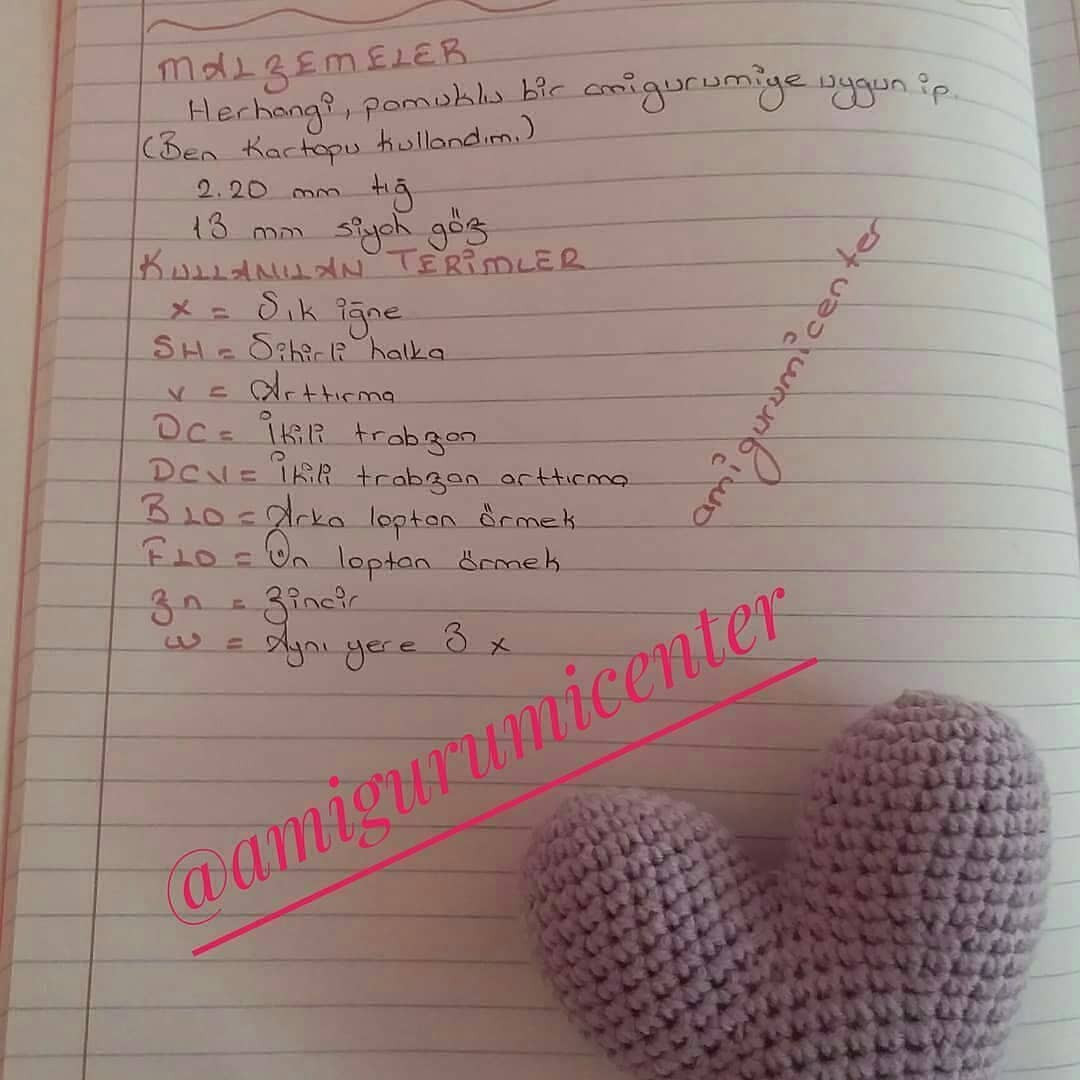 MALZEMELER
Herhangi, pamuklu bir amigurumiye uygun ip.
(Ben Kartopu kullandım.)
2.20 mm tığ
13 mm siyah göz
KULLANILAN TERİMLER
x = Sık iğne
SH = Sihirli halka
v = Arttırma
DC = İkili trabzan
DCV = İkili trabzan arttırma
BLO = Arka loptan örmek
FLO = Ön loptan örmek
zn = Zincir
w = Aynı yere 3 x
amigurumicenter
@amigurumicenter